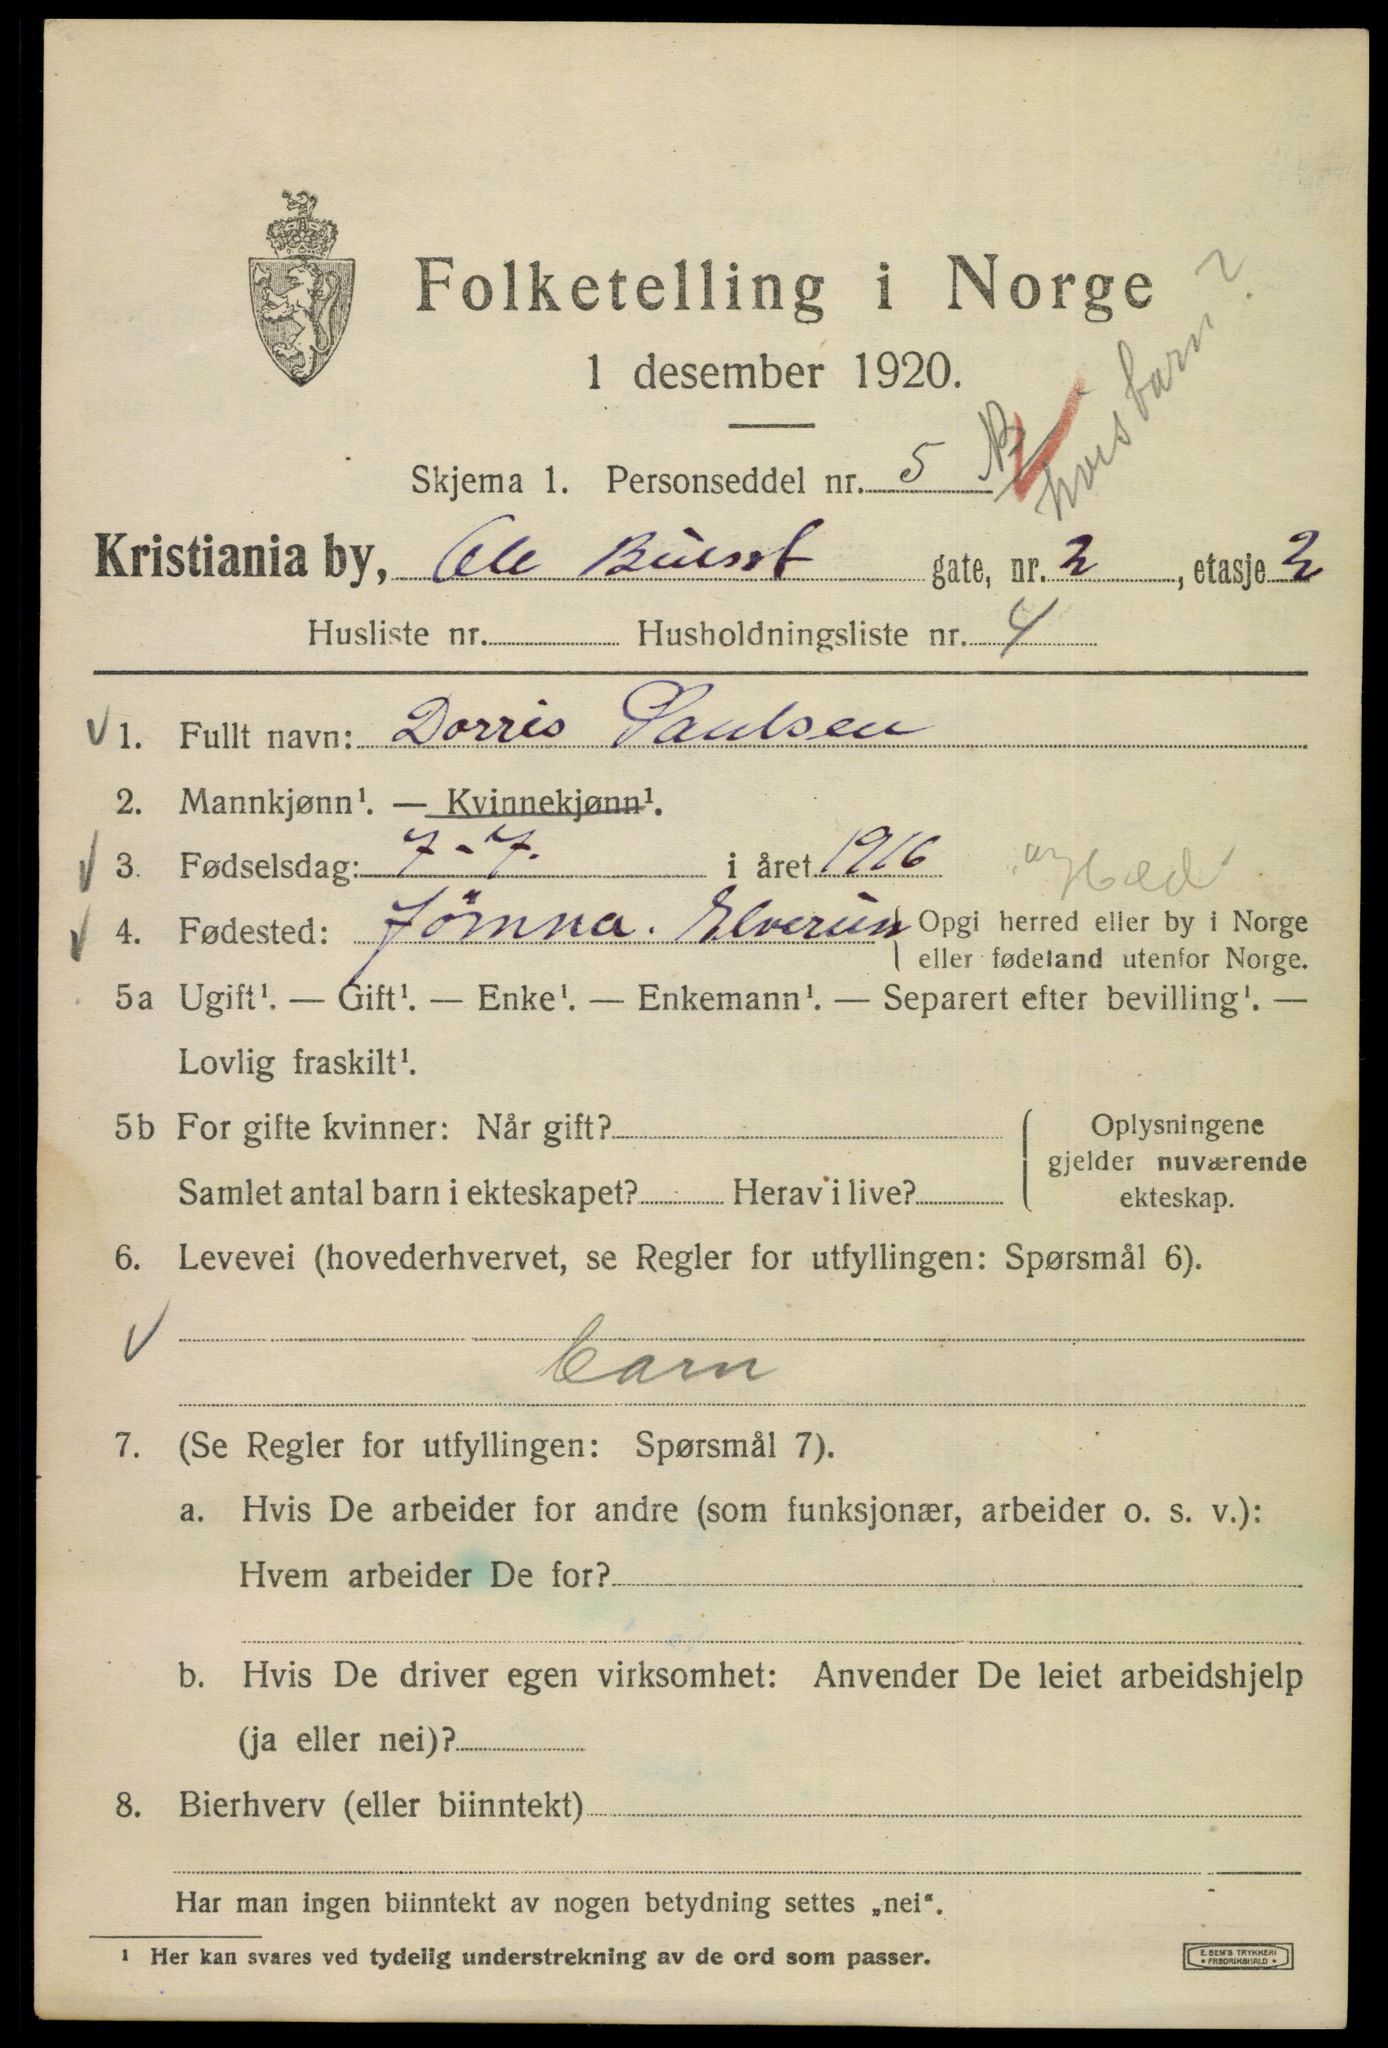 Folketelling i Norge
1 desember 1920.
hvis barn?
Skjema 1. Personseddel nr. 5
Kristiania by, Ole Bulls gate, nr. 2, etasje 2
Husliste nr. Husholdningsliste nr. 4
1. Fullt navn: Dorris Paulsen
2. Mannkjønn¹. — Kvinnekjønn¹.
3. Fødselsdag: 7-7. i året 1916
4. Fødested: Jömna. Elverum Opgi herred eller by i Norge
eller fødeland utenfor Norge.
5a Ugift¹. — Gift¹. — Enke¹. — Enkemann¹. — Separert efter bevilling¹. —
Lovlig fraskilt¹.
5b For gifte kvinner: Når gift? Oplysningene
gjelder nuværende
Samlet antal barn i ekteskapet? Herav i live? ekteskap.
6. Levevei (hovederhvervet, se Regler for utfyllingen: Spørsmål 6).
barn
7. (Se Regler for utfyllingen: Spørsmål 7).
a. Hvis De arbeider for andre (som funksjonær, arbeider o. s. v.):
Hvem arbeider De for?
b. Hvis De driver egen virksomhet: Anvender De leiet arbeidshjelp
(ja eller nei)?
8. Bierhverv (eller biinntekt)
Har man ingen biinntekt av nogen betydning settes „nei“.
¹ Her kan svares ved tydelig understrekning av de ord som passer.
E. SEM'S TRYKKERI
FREDRIKSHALD